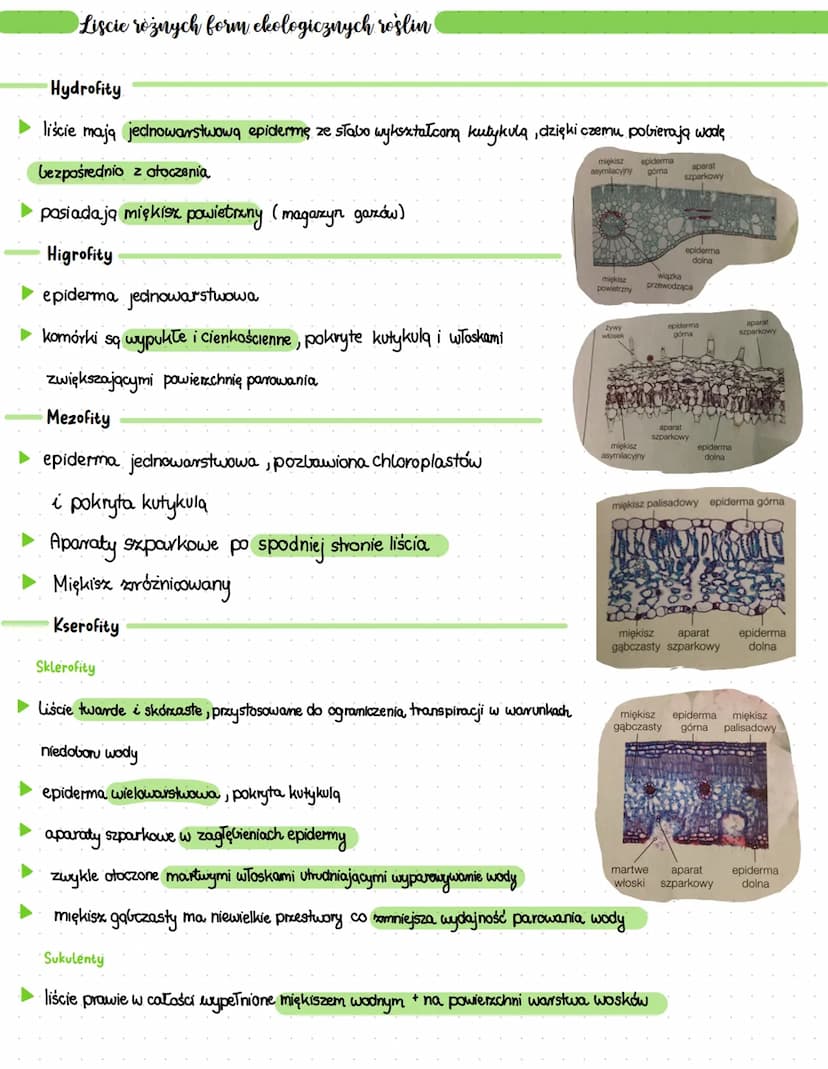 Liście różnych form ekologicznych roślin
Hydrofity
liście mają jednowarstwową epidermę ze słabo wykształconą kutykulą, dzięki czemu pobierają wodę
bezpośrednio z otoczenia
posiadają miękisz powietrzny (magazyn gazów)
miękisz asymilacyjny
epiderma górna
aparat szparkowy
epiderma dolna
miękisz powietrzny
wiązka przewodząca
Higrofity
epiderma jednowarstwowa
komórki są wypukłe i cienkościenne, pokryte kutykulą i włoskami
zwiększającymi powierzchnię parowania
żywy włosek
epiderma górna
aparat szparkowy
aparat szparkowy
miękisz asymilacyjny
epiderma dolna
Mezofity
epiderma jednowarstwowa, pozbawiona chloroplastów
i pokryta kutykulą
Aparaty szparkowe po spodniej stronie liścia
Miękisz zróżnicowany
miękisz palisadowy epiderma górna
miękisz gąbczasty
aparat szparkowy
epiderma dolna
Kserofity
Sklerofity
Liście twarde i skórzaste, przystosowane do ograniczenia transpiracji w warunkach
niedoboru wody
epiderma wielowarstwowa, pokryta kutykulą
aparaty szparkowe w zagłębieniach epidermy
zwykle otoczone martwymi włoskami utrudniającymi wyparowywanie wody
miękisz gąbczasty ma niewielkie przestwory co zmniejsza wydajność parowania wody
miękisz gąbczasty
epiderma górna
miękisz palisadowy
martwe włoski
aparat szparkowy
epiderma dolna
Sukulenty
liście prawie w całości wypełnione miękiszem wodnym + na powierzchni warstwa wosków